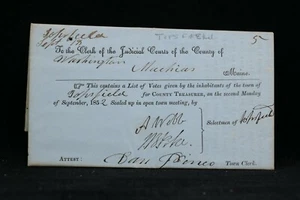 Topsfield
Sept 13
TOPSFIELD
5
To the Clerk of the Judicial Courts of the County of
Washington Machias Maine.
This contains a List of Votes given by the inhabitants of the town of
Topsfield for COUNTY TREASURER, on the second Monday
of September, 1852 Sealed up in open town meeting, by
A Webb
Selectmen of Topsfield
ATTEST: Town Clerk.